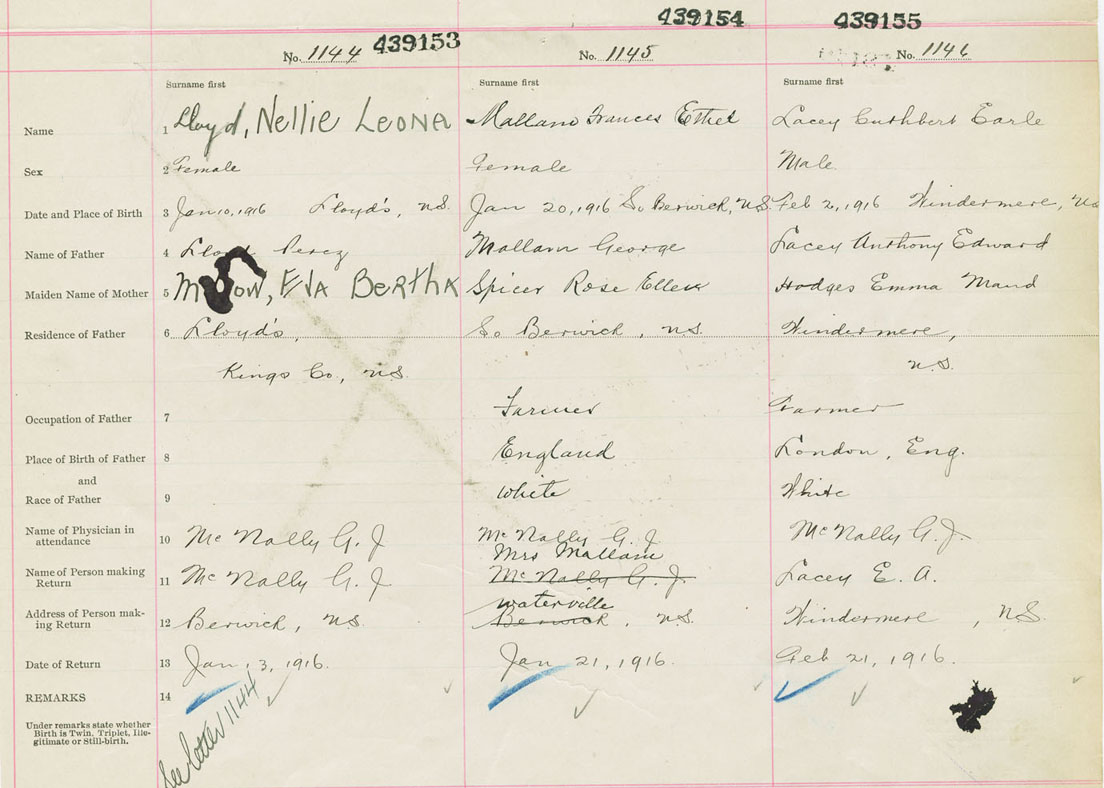 439153 439154 439155
No. 1144 No. 1145 No. 1146
Surname first Surname first Surname first
Name 1 Lloyd, Nellie Leona Mallam Frances Ethel Lacey Cuthbert Earle
Sex 2 Female Female Male
Date and Place of Birth 3 Jan 10, 1916 Lloyd's, N.S. Jan 20, 1916 So Berwick, N.S. Feb 2, 1916 Windermere, NS
Name of Father 4 Lloyd Percy Mallam George Lacey Anthony Edward
Maiden Name of Mother 5 Bertha Spicer Rose Ellen Hodges Emma Maud
Residence of Father 6 Lloyd's, So Berwick, N.S. Windermere,
Kings Co, N.S. N.S.
Occupation of Father 7 Farmer Farmer
Place of Birth of Father 8 England London, Eng.
and
Race of Father 9 White White
Name of Physician in attendance 10 McNally G. J McNally G. J McNally G. J.
Mrs Mallam
Name of Person making Return 11 McNally G. J McNally G. J. Lacey E. A.
Waterville
Address of Person making Return 12 Berwick, NS. Berwick, N.S. Windermere, NS
Date of Return 13 Jan, 3, 1916. Jan 21, 1916. Feb 21, 1916.
REMARKS 14
See letter 1144
Under remarks state whether
Birth is Twin, Triplet, Ille-
gitimate or Still-birth.